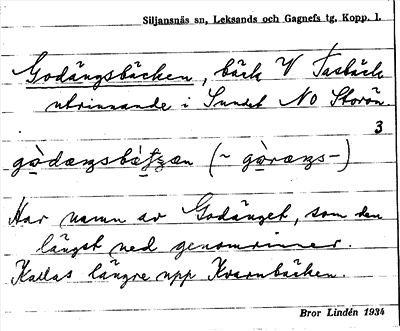 Siljansnäs sn, Leksands och Gagnefs tg, Kopp. l.
Godängsbäcken, bäck V Tasbäck
utrinnande i Sundet NO Storön.
3
(~
Har namn av Godänget, som den
längst ned genomrinner.
Kallas längre upp Kvarnbäcken.
Bror Lindén 1934